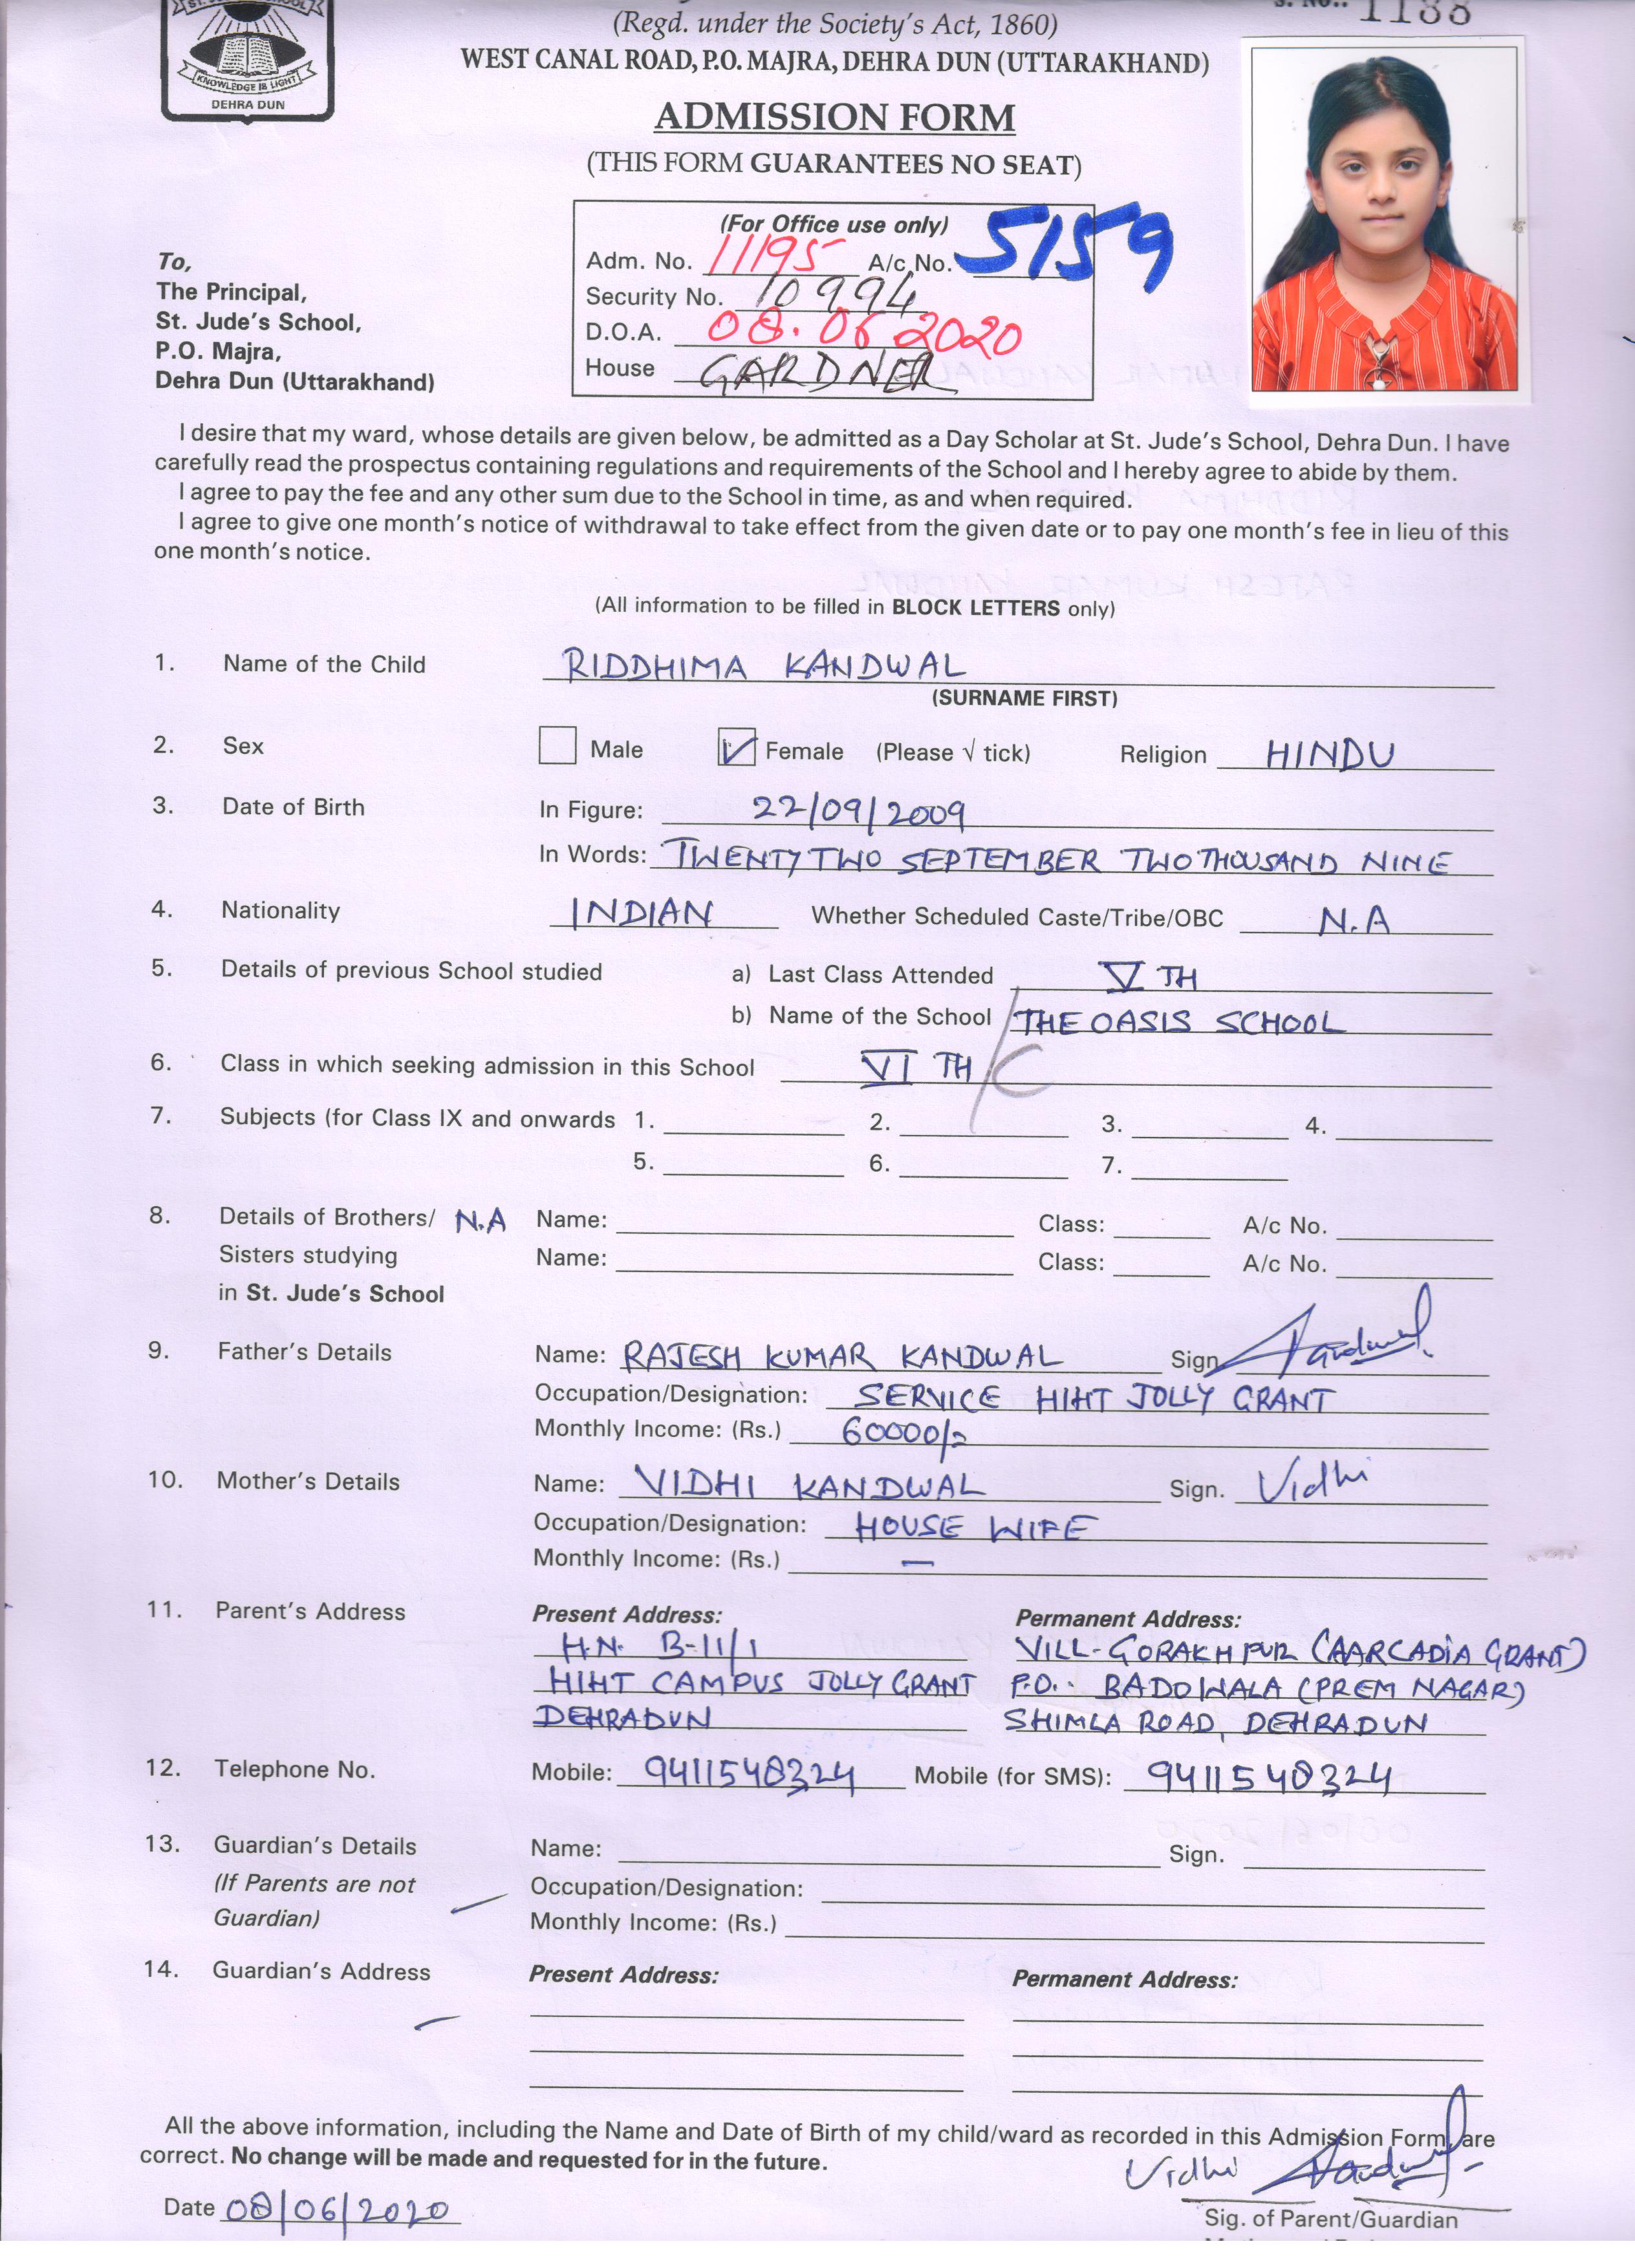 (Regd. under the Society's Act, 1860)
WEST CANAL ROAD, P.O. MAJRA, DEHRA DUN (UTTARAKHAND)
KNOWLEDGE IS LIGHT
DEHRA DUN
ADMISSION FORM
(THIS FORM GUARANTEES NO SEAT)
(For Office use only)
Adm. No. 11195 A/c No. 5159
Security No. 10994
D.O.A. 08.06 2020
House GARDNER
To,
The Principal,
St. Jude's School,
P.O. Majra,
Dehra Dun (Uttarakhand)
I desire that my ward, whose details are given below, be admitted as a Day Scholar at St. Jude's School, Dehra Dun. I have
carefully read the prospectus containing regulations and requirements of the School and I hereby agree to abide by them.
I agree to pay the fee and any other sum due to the School in time, as and when required.
I agree to give one month's notice of withdrawal to take effect from the given date or to pay one month's fee in lieu of this
one month's notice.
(All information to be filled in BLOCK LETTERS only)
1. Name of the Child RIDDHIMA KANDWAL
(SURNAME FIRST)
2. Sex Male Female (Please √ tick) Religion HINDU
3. Date of Birth In Figure: 22/09/2009
In Words: TWENTY TWO SEPTEMBER TWO THOUSAND NINE
4. Nationality INDIAN Whether Scheduled Caste/Tribe/OBC N.A
5. Details of previous School studied a) Last Class Attended V TH
b) Name of the School THE OASIS SCHOOL
6. Class in which seeking admission in this School VI TH /C
7. Subjects (for Class IX and onwards 1. 2. 3. 4.
5. 6. 7.
8. Details of Brothers/ N.A Name: Class: A/c No.
Sisters studying Name: Class: A/c No.
in St. Jude's School
9. Father's Details Name: RAJESH KUMAR KANDWAL Sign
Occupation/Designation: SERVICE HIHT JOLLY GRANT
Monthly Income: (Rs.) 60000/=
10. Mother's Details Name: VIDHI KANDWAL Sign. Vidhi
Occupation/Designation: HOUSE WIFE
Monthly Income: (Rs.) —
11. Parent's Address Present Address: Permanent Address:
H.N. B-11/1 VILL-GORAKHPUR (AARCADIA GRANT)
HIHT CAMPUS JOLLY GRANT P.O.- BADOWALA (PREM NAGAR)
DEHRADUN SHIMLA ROAD, DEHRADUN
12. Telephone No. Mobile: 9411548324 Mobile (for SMS): 9411548324
13. Guardian's Details Name: Sign.
(If Parents are not Occupation/Designation:
Guardian) Monthly Income: (Rs.)
14. Guardian's Address Present Address: Permanent Address:
All the above information, including the Name and Date of Birth of my child/ward as recorded in this Admission Form, are
correct. No change will be made and requested for in the future.
Vidhi
Date 08/06/2020
Sig. of Parent/Guardian